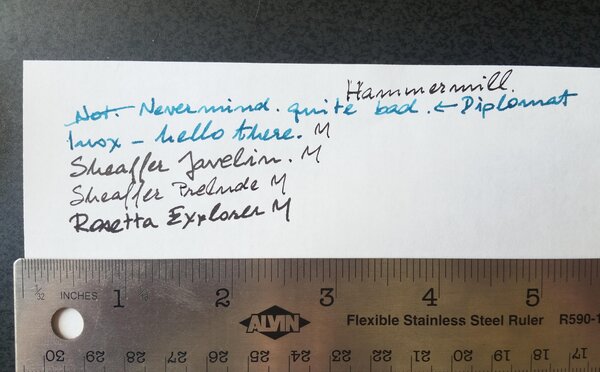 Hammermill.
Not. Nevermind. quite bad. ← Diplomat
Inox - hello there. M
Sheaffer Javelin. M
Sheaffer Prelude M
Rosetta Explorer M
1/32 INCHES 1 2 3 4 5
ALVIN Flexible Stainless Steel Ruler R590-1
30 29 28 27 26 25 24 23 22 21 20 19 18 17